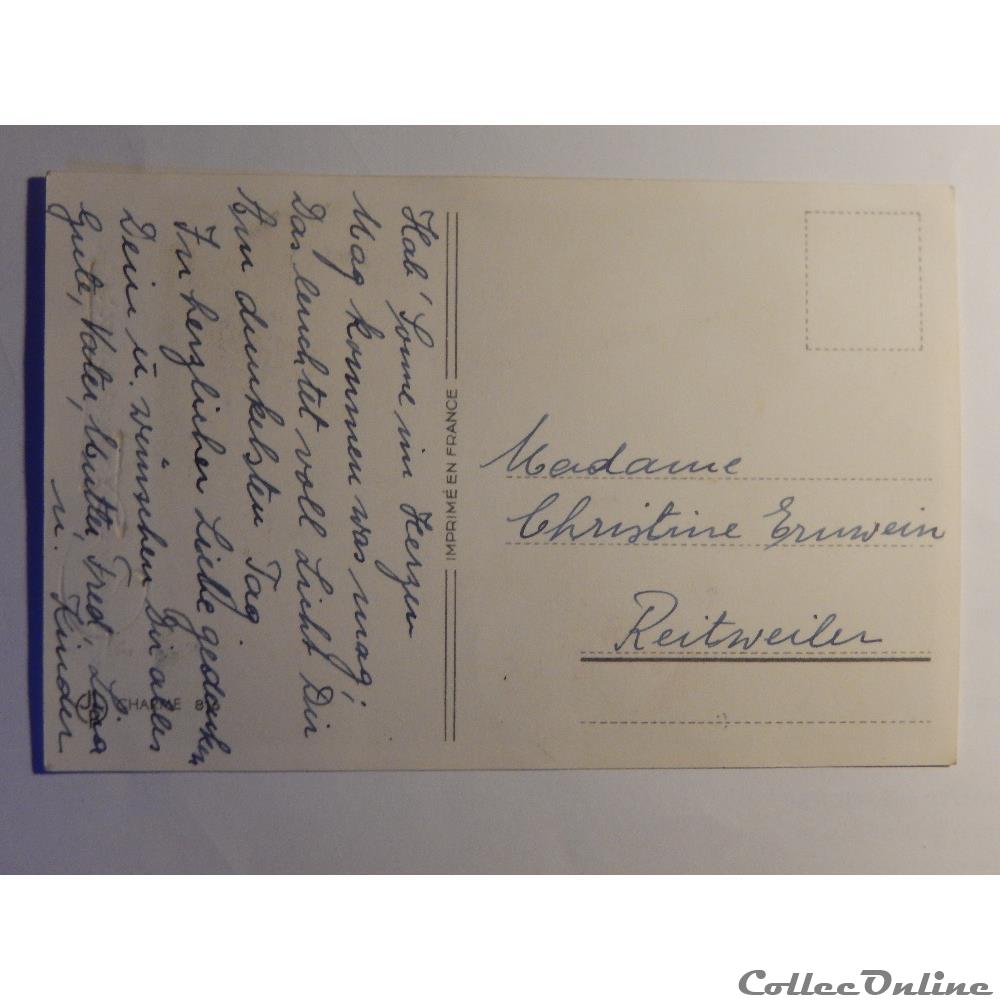 Hab' Sonne im Herzen
Mag kommen was mag!
Das leuchtet voll Licht Dir
Am dunkelsten Tag.
In herzlicher Liebe gedenken
Dein u. wünschen Dir alles
Gute, Vater, Mutter, Fred, Lina
u. Kinder
IMPRIMÉ EN FRANCE
CHARME
Madame
Christine Erwein
Reitweiler
CollecOnline